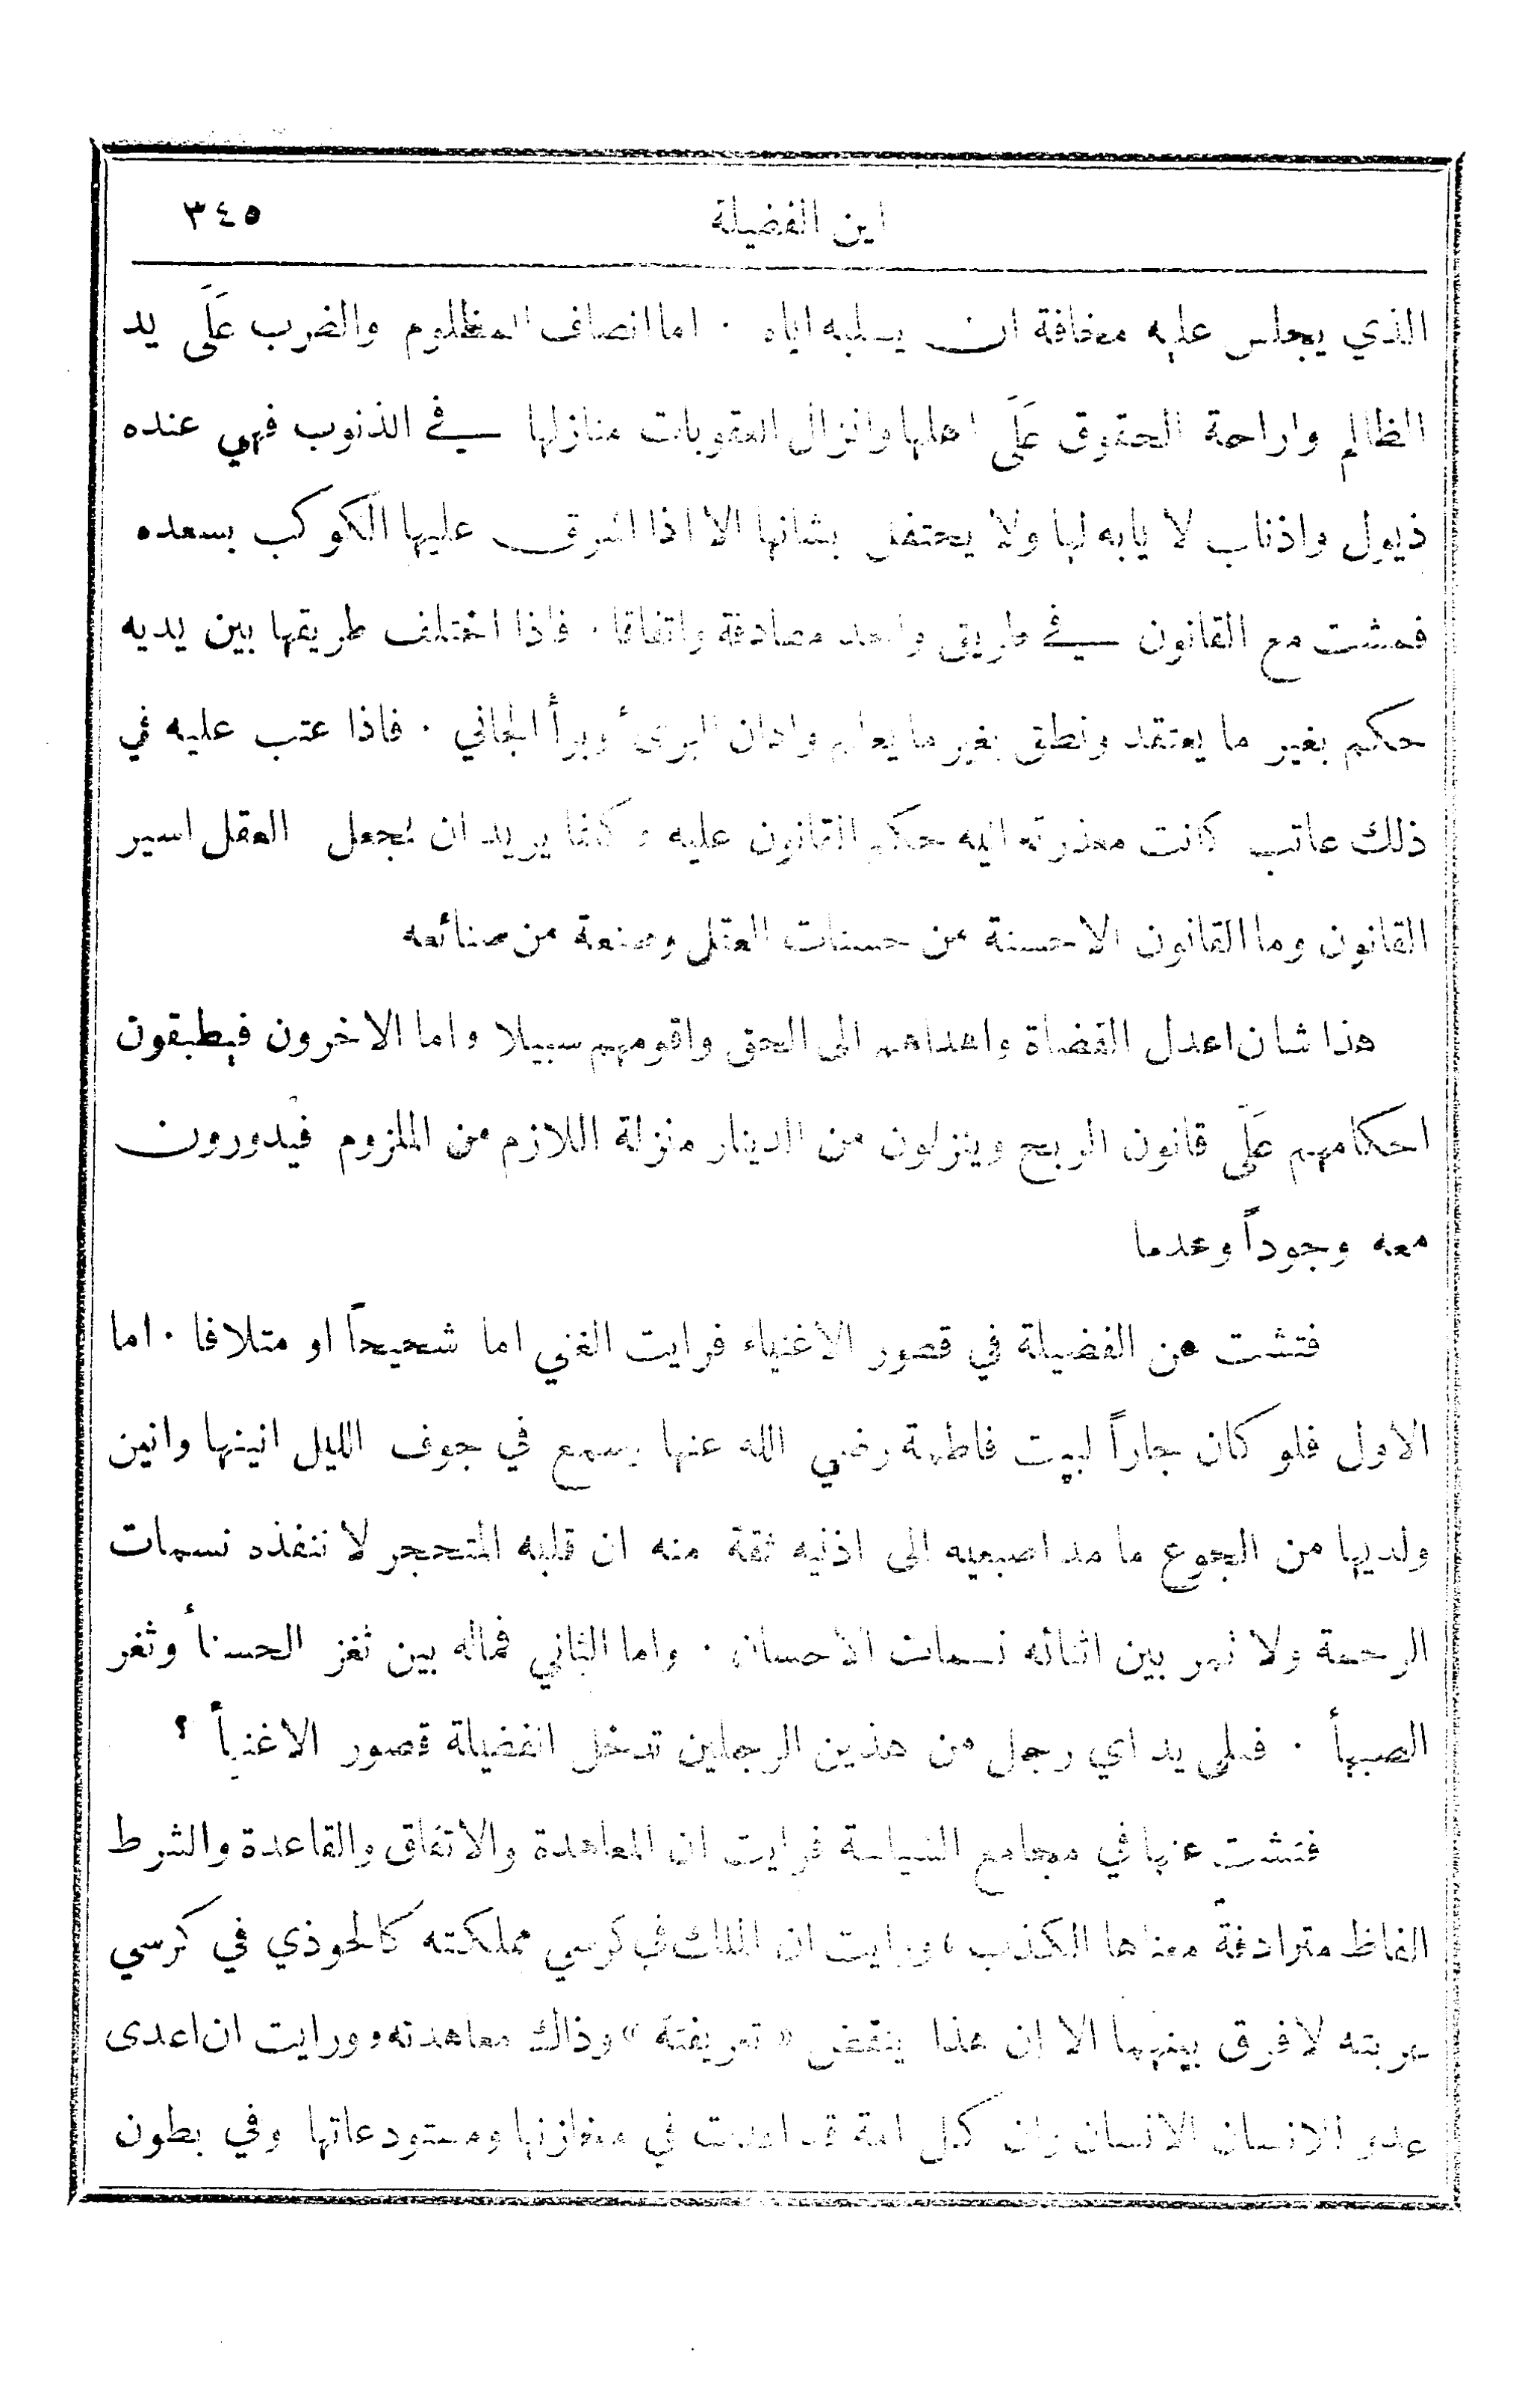 اين الفضيلة ٣٤٥
الذي يجلس عليه مخافة ان يسلبه اياه ٠ اما انصاف المظلوم والضرب عَلَى يد
الظالم واراحة الحقوق عَلَى اهلها وانزال العقوبات منازلها في الذنوب فهي عنده
ذيول واذناب لا يابه لها ولا يحتفل بشانها الا اذا اشرق عليها الكوكب بسعده
فمشت مع القانون في طريق واحد مصادفة واتفاقا ٠ فاذا اختلف طريقها بين يديه
حكم بغير ما يعتقد ونطق بغير ما يعلم وادان البرىء وبرأ الجاني ٠ فاذا عتب عليه في
ذلك عاتب كانت معذرته اليه حكم القانون عليه ، كانما يريد ان يجعل العقل اسير
القانون وما القانون الا حسنة من حسنات العقل وصنعة من صنائعه
هذا شان اعدل القضاة واهداهم الى الحق واقومهم سبيلا واما الاخرون فيطبقون
احكامهم عَلَى قانون الربح وينزلون من الدينار منزلة اللازم من الملزوم فيدورون
معه وجوداً وعدما
فتشت عن الفضيلة في قصور الاغنياء فرايت الغني اما شحيحاً او متلافا ٠ اما
الاول فلو كان جاراً لبيت فاطمة رضي الله عنها يسمع في جوف الليل انينها وانين
ولديها من الجوع ما مد اصبعيه الى اذنيه ثقة منه ان قلبه المتحجر لا تنفذه نسمات
الرحمة ولا تمر بين اثنائه نسمات الاحسان ٠ واما الثاني فماله بين ثغر الحسنأ وثغر
الصهبأ ٠ فعلى يد اي رجل من هذين الرجلين تدخل الفضيلة قصور الاغنيأ ؟
فتشت عنها في مجامع السياسة فرايت ان المعاهدة والاتفاق والقاعدة والشرط
الفاظ مترادفة معناها الكذب ، ورايت ان الملك في كرسي مملكته كالحوذي في كرسي
عربته لا فرق بينهما الا ان هذا ينقض « تعريفته » وذاك معاهدته ، ورايت ان اعدى
عدو للانسان الانسان وان كل امة قد اعدت في مخازنها ومستودعاتها وفي بطون